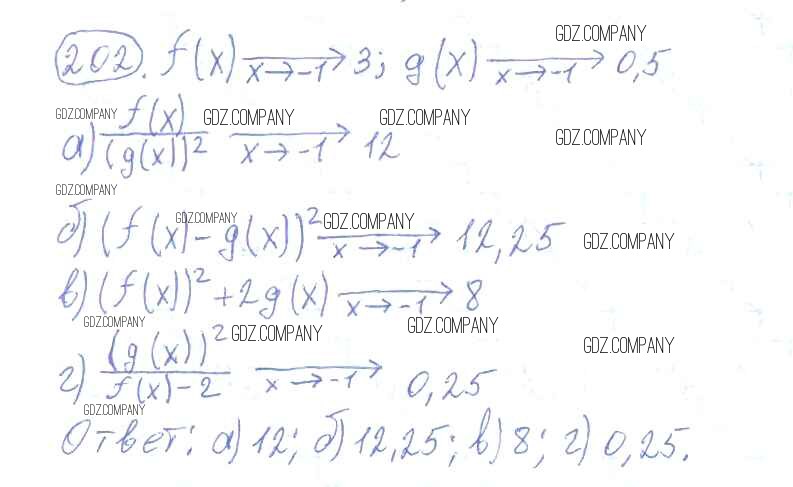 202. f(x) →(x→-1) 3; g(x) →(x→-1) 0,5 GDZ.COMPANY
GDZ.COMPANY GDZ.COMPANY GDZ.COMPANY
а) f(x)/(g(x))² →(x→-1) 12 GDZ.COMPANY
GDZ.COMPANY
GDZ.COMPANY GDZ.COMPANY
б) (f(x) - g(x))² →(x→-1) 12,25 GDZ.COMPANY
в) (f(x))² + 2g(x) →(x→-1) 8
GDZ.COMPANY GDZ.COMPANY GDZ.COMPANY
г) (g(x))²/(f(x) - 2) →(x→-1) 0,25 GDZ.COMPANY
GDZ.COMPANY
Ответ: а) 12; б) 12,25; в) 8; г) 0,25.